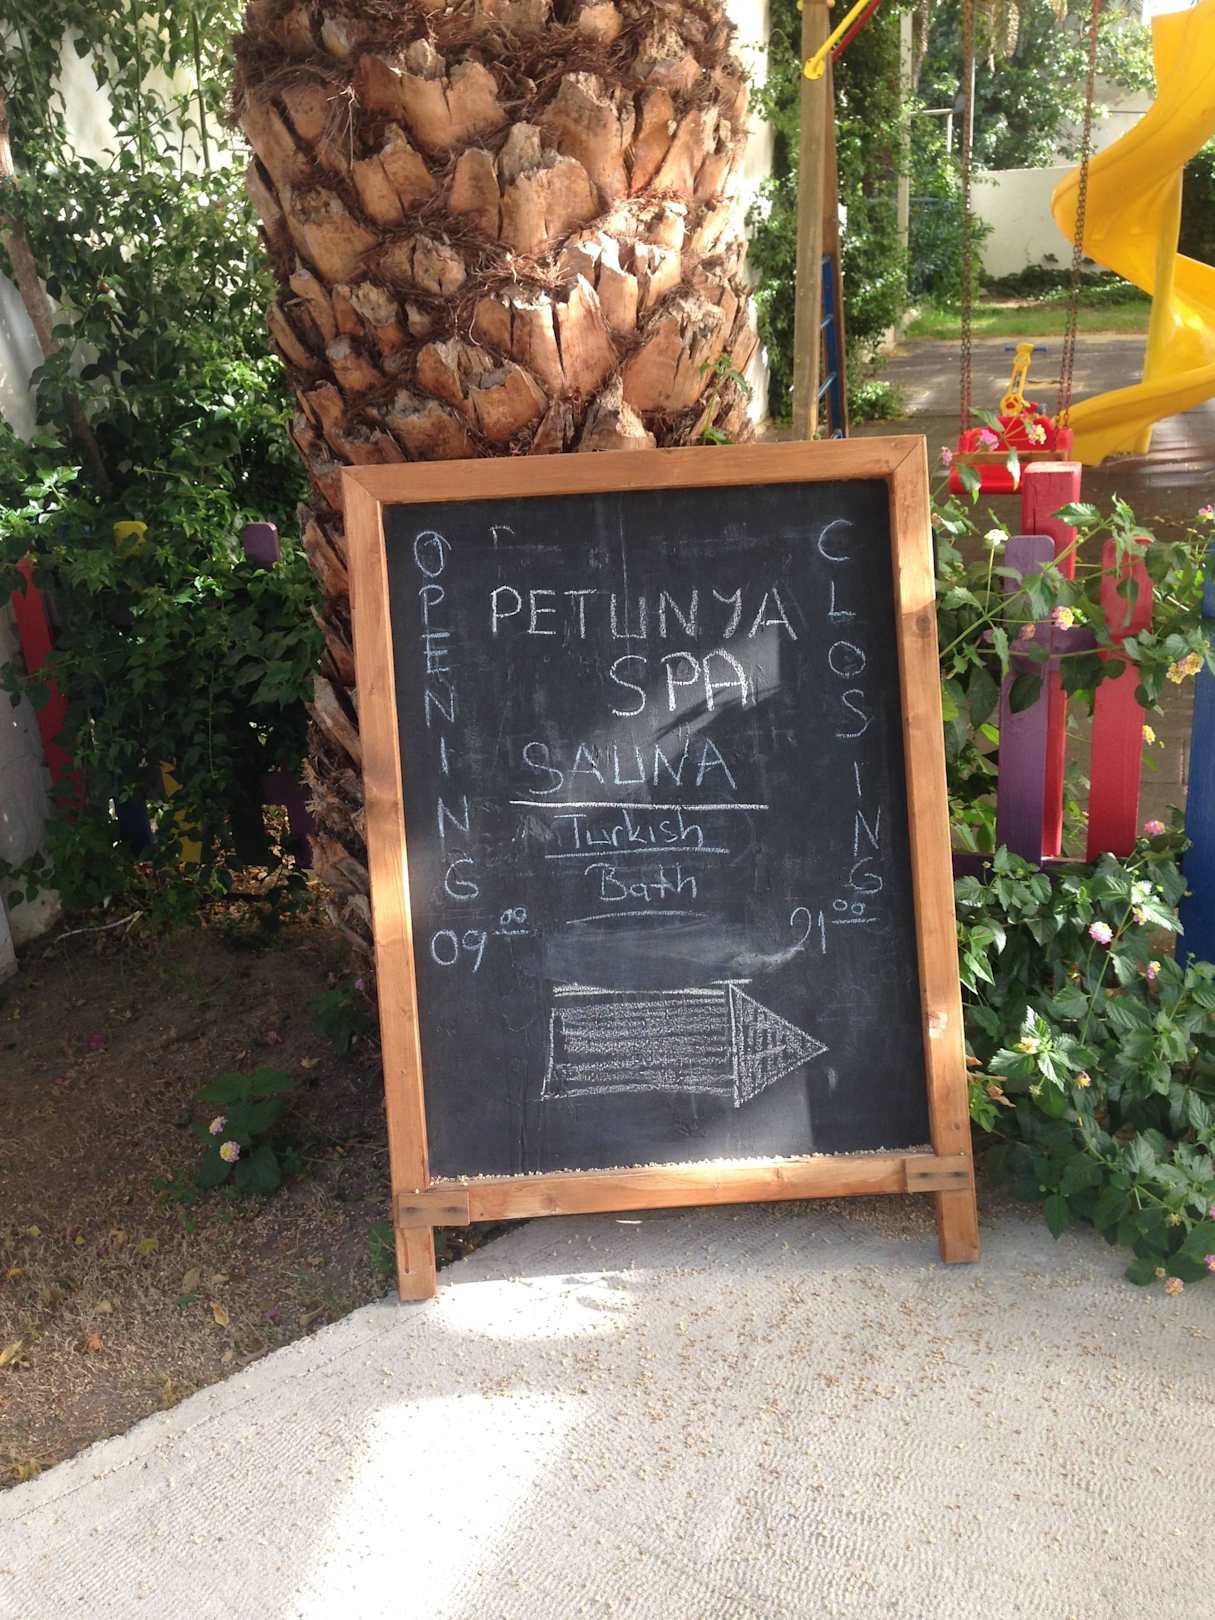 OPENING
09 00
PETUNYA
SPA
SAUNA
Turkish
Bath
CLOSING
21 00